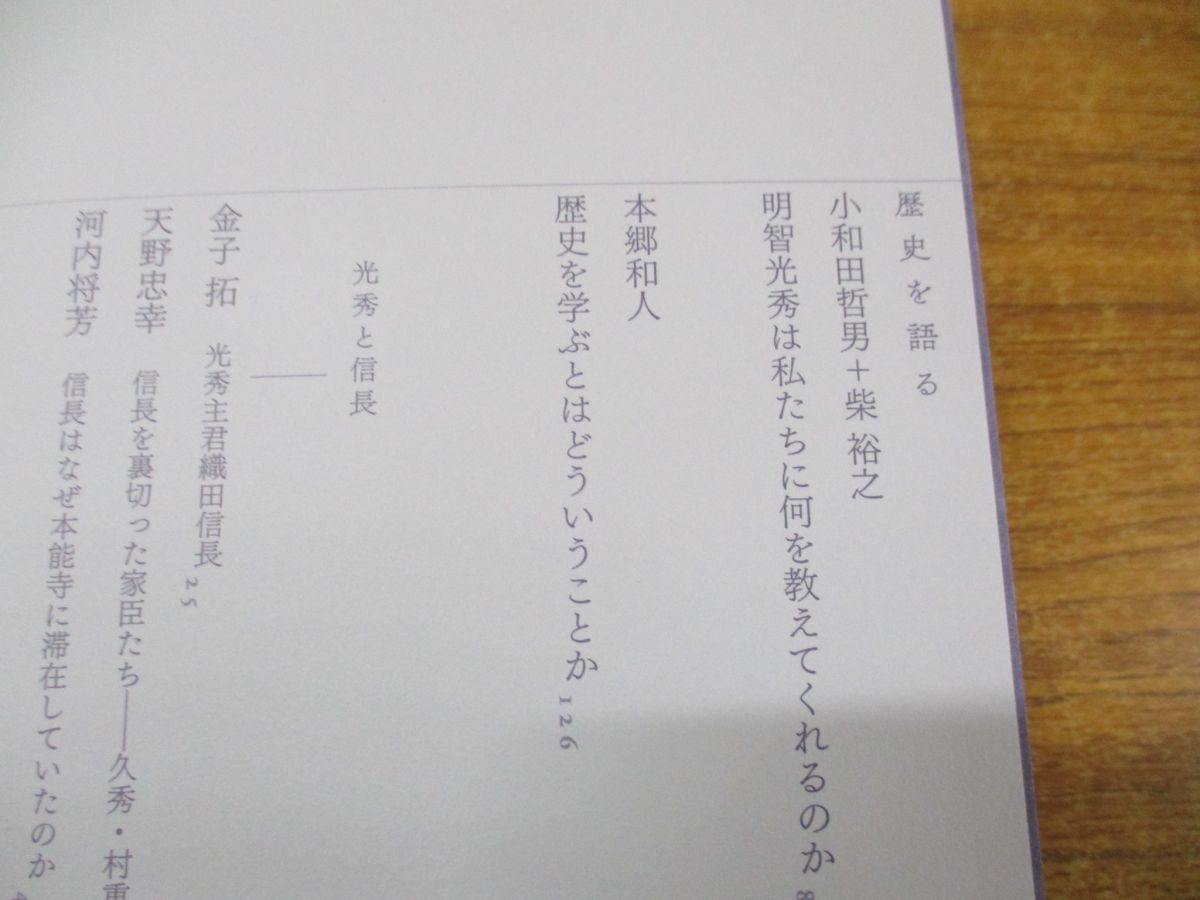 歴史を語る
小和田哲男＋柴 裕之
明智光秀は私たちに何を教えてくれるのか 8
本郷和人
歴史を学ぶとはどういうことか 126
光秀と信長
金子 拓 光秀主君織田信長 25
天野忠幸 信長を裏切った家臣たち――久秀・村重
河内将芳 信長はなぜ本能寺に滞在していたのか